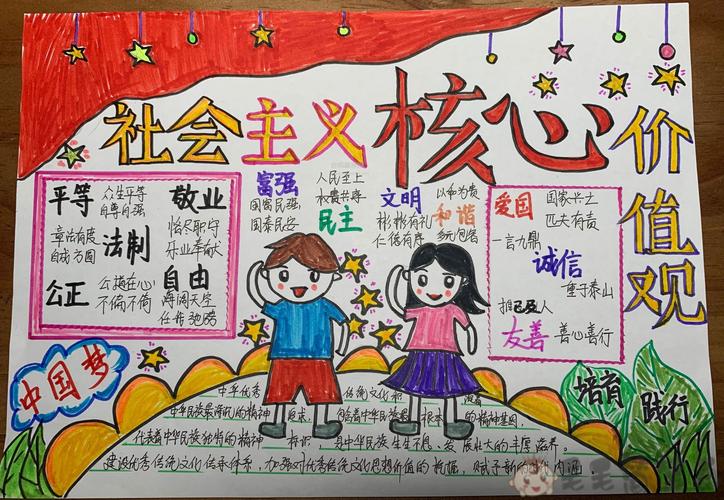 社会主义核心价值观
平等 众生平等
自尊自强
敬业 恪尽职守
乐业奉献
章法有度
自成方圆
法制
公正 公道在心
不偏不倚
自由
海阔天空
任借驰骋
富强
国富民强
国泰民安
人民至上
民主
文明
彬彬有礼
仁德有序
以和为贵
和谐
多元包容
爱国 国家兴亡
匹夫有责
一言九鼎
诚信
重于泰山
推己及人
友善 善心善行
中国梦
培育
践行
中华优秀 传统文化
中华民族最深沉的精神追求 中华民族 根本 的精神基因,
代表着中华民族独特的精神 标识,是中华民族生生不息、发展壮大的丰厚滋养。
建设优秀传统文化传承体系,加强对优秀传统文化思想价值的挖掘,赋予新的 内涵